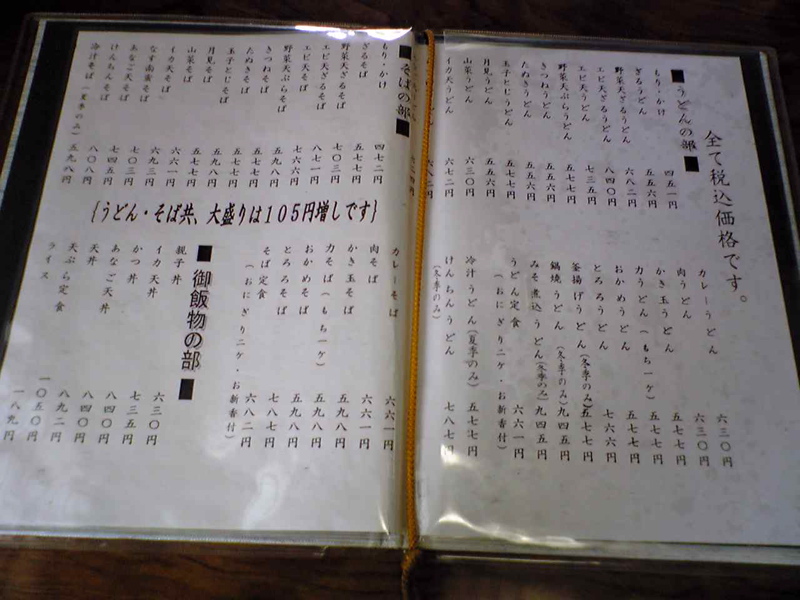 全て税込価格です。
■うどんの部■
もり・かけ 四五一円
ざるうどん 五五六円
野菜天ざるうどん 六八二円
エビ天ざるうどん 八四〇円
エビ天うどん 七三五円
野菜天ぷらうどん 五七七円
きつねうどん 五五六円
たぬきうどん 五五六円
玉子とじうどん 五七七円
月見うどん 五五六円
山菜うどん 六三〇円
イカ天うどん 六七二円
六八二円
カレーうどん 六三〇円
肉うどん 六三〇円
かき玉うどん 五七七円
力うどん（もち一ケ） 五七七円
おかめうどん 五七七円
とろろうどん 七六六円
釜揚げうどん（冬季のみ） 五七七円
鍋焼うどん（冬季のみ） 九四五円
みそ煮込うどん（冬季のみ） 九四五円
うどん定食 六六一円
（おにぎり二ケ・お新香付）
冷汁うどん（夏季のみ） 五七七円
けんちんうどん 七八七円
（冬季のみ）
■そばの部■
もり・かけ 四七二円
ざるそば 五七七円
野菜天ざるそば 七〇三円
エビ天ざるそば 八七一円
エビ天そば 七六六円
野菜天ぷらそば 五九八円
きつねそば 五七七円
たぬきそば 五七七円
玉子とじそば 五九八円
月見そば 五七七円
山菜そば 六六一円
イカ天そば 六九三円
なす南蛮そば 七〇三円
あなご天そば 七四五円
けんちんそば 八〇八円
冷汁そば（夏季のみ） 五九八円
{うどん・そば共、大盛りは105円増しです}
カレーそば 六六一円
肉そば 六六一円
かき玉そば 五九八円
力そば（もち一ケ） 五九八円
おかめそば 五九八円
とろろそば 七八七円
そば定食 六八二円
（おにぎり二ケ・お新香付）
■御飯物の部■
親子丼 六三〇円
イカ天丼 七三五円
かつ丼 八四〇円
あなご天丼 八四〇円
天丼 八九二円
天ぷら定食 一〇五〇円
ライス 一八九円